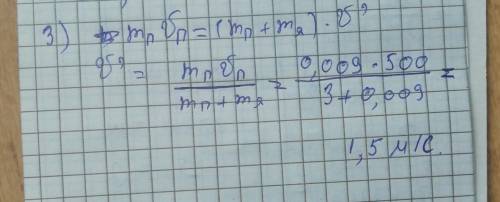 3) mп υп = (mп + mя) · υ?
υ? = mп υп / mп + mя = 0,009 · 500 / 3 + 0,009 =
1,5 м/с.